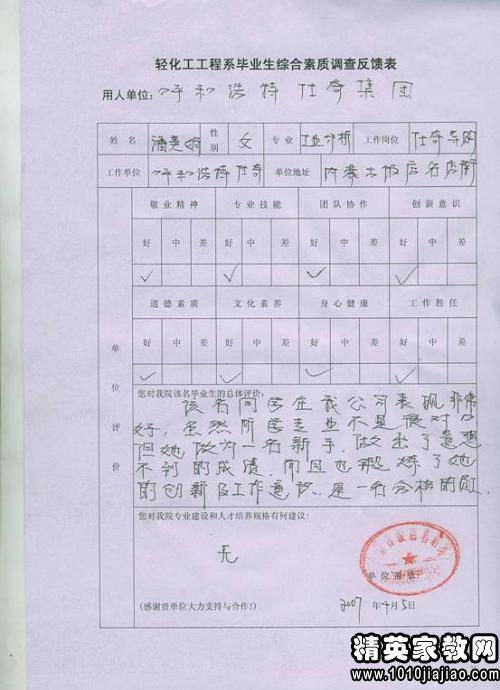 轻化工工程系毕业生综合素质调查反馈表
用人单位: 呼和浩特仕奇集团
姓名 潘美娟 性别 女 专业 工业分析 工作岗位 仕奇导购
工作单位 呼和浩特仕奇 单位地址 内蒙古饭店名店街
敬业精神 专业技能 团队协作 创新意识
好 中 差 好 中 差 好 中 差 好 中 差
✓ ✓ ✓ ✓
道德素质 文化素养 身心健康 工作胜任
好 中 差 好 中 差 好 中 差 好 中 差
✓ ✓ ✓ ✓
单位评价
您对我院该名毕业生的总体评价:
该名同学在我公司表现非常
好,虽然所学专业不是很对口
但她做为一名新手,做出了意想
不到的成绩,而且也锻炼了她
的创新及工作意识,是一名合格的
您对我院专业建设和人才培养规格有何建议:
无
单位
(感谢贵单位大力支持与合作!) 2007 年4月5日
精英家教网
www.1010jiajiao.com